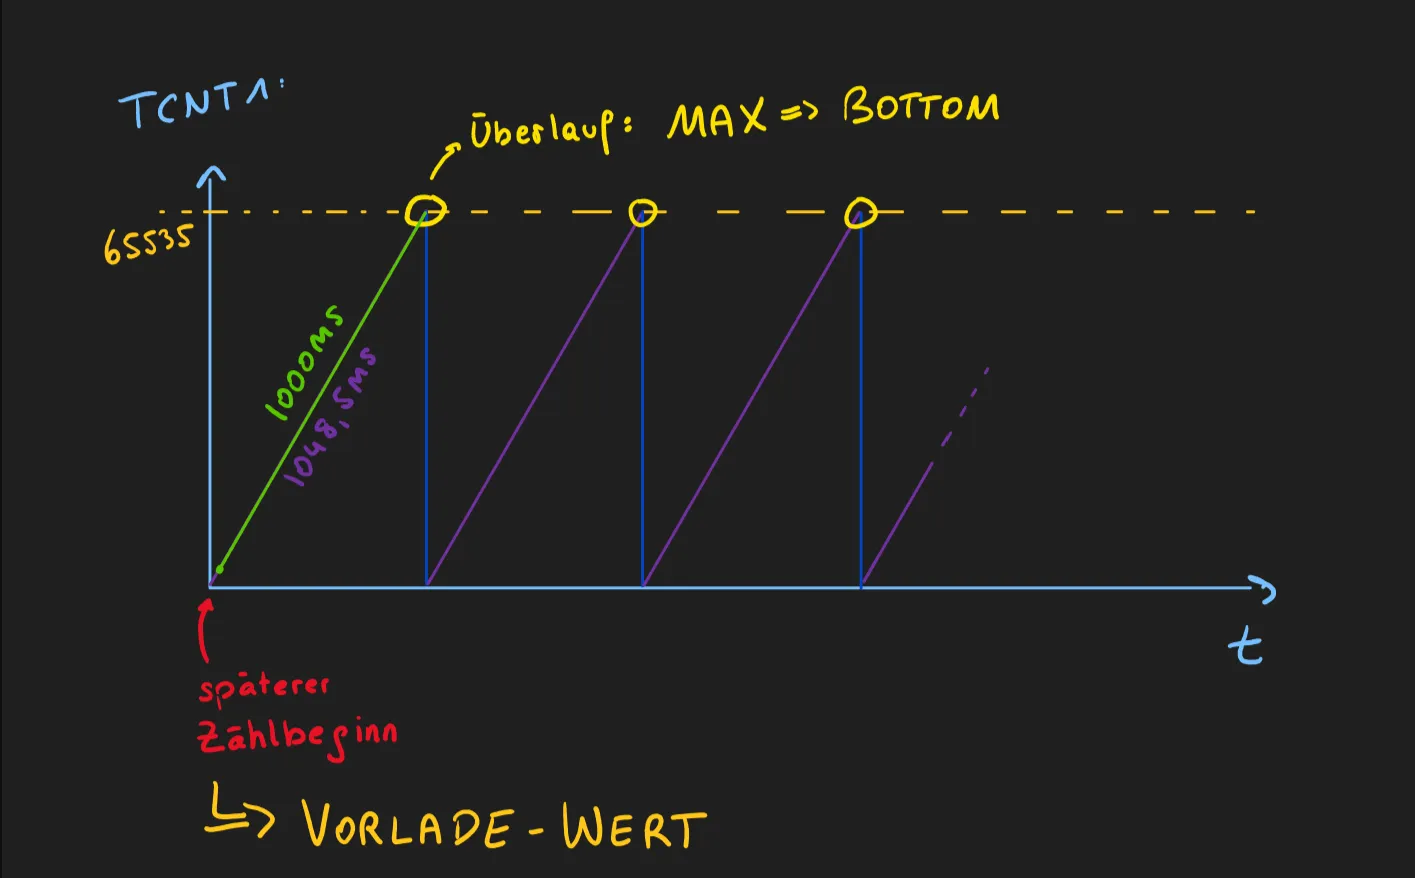 TCNT1:
Überlauf: MAX => BOTTOM
65535
1000ms
1048,5ms
t
späterer
Zählbeginn
VORLADE-WERT